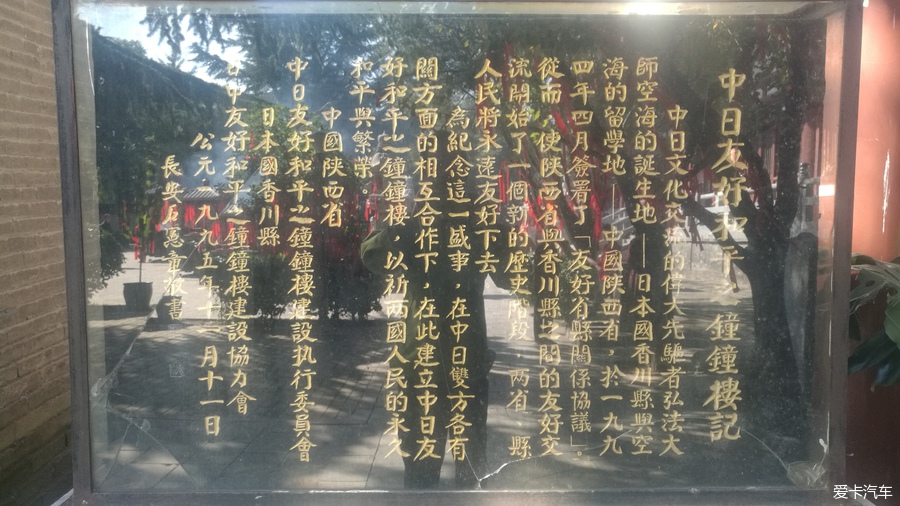 中日友好和平之鐘鐘樓記
中日文化交流的偉大先驅者弘法大
師空海的誕生地——日本國香川縣與空
海的留學地、中國陝西省，於一九九
四年四月簽署了「友好省縣關係協議」。
從而，使陝西省與香川縣之間的友好交
流開始了一個新的歷史階段，兩省、縣
人民將永遠友好下去。
為紀念這一盛事，在中日雙方各有
關方面的相互合作下，在此建立中日友
好和平之鐘鐘樓，以祈兩國人民的永久
和平與繁榮。
中國陝西省
中日友好和平之鐘鐘樓建設执行委員會
日本國香川縣
日中友好和平之鐘鐘樓建設協力會
公元一九九五年十一月十一日
長安石憲章敬書
爱卡汽车